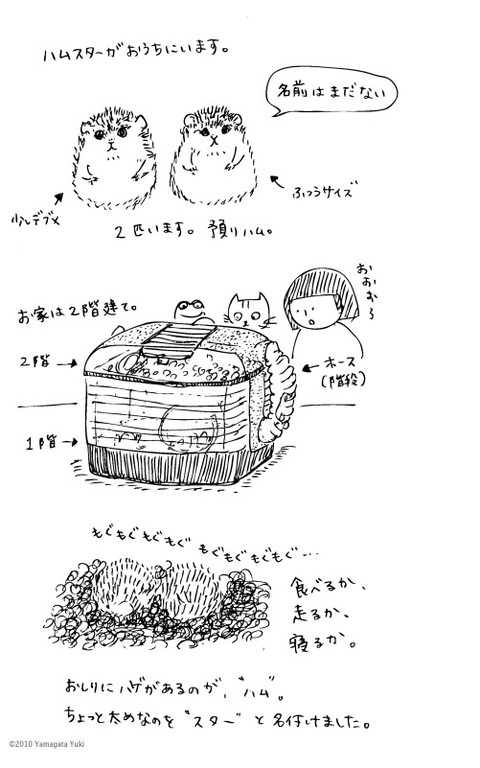 ハムスターがおうちにいます。
名前はまだない
少しデブメ
ふつうサイズ
2匹います。預りハム。
お家は2階建て。
おおむ〜
2階→
ホース
(階段)
1階→
もぐもぐもぐもぐ もぐもぐもぐもぐ…
食べるか、
走るか、
寝るか。
おしりにハゲがあるのが、"ハム"。
ちょっと太めなのを"スター"と名付けました。
©2010 Yamagata Yuki